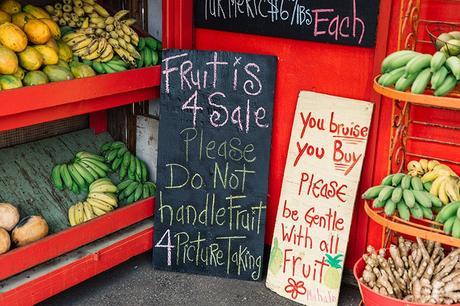 TURMERIC $6/LBS
Each
Fruit is
4 Sale
Please
Do Not
handle Fruit
4 Picture Taking
you bruise
you Buy
Please
be Gentle
With all
Fruit
Mahalo